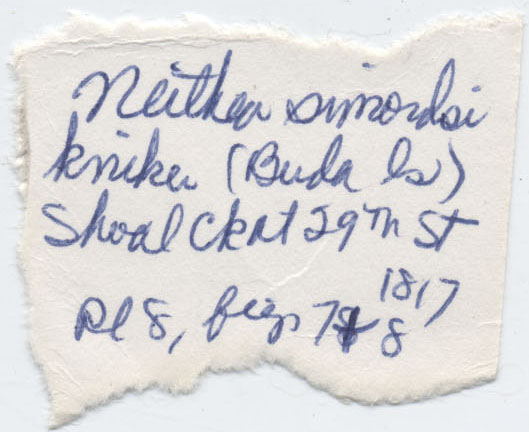 Neithea simondsi
kniker (Buda ls)
Shoal Ck at 29th St
Pl 8, figs 7 & 8 1817